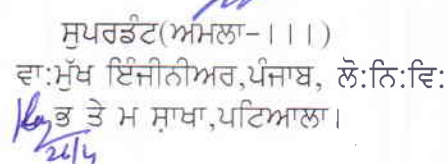 ਸੁਪਰਡੰਟ(ਅਮਲਾ-।।।)
ਵਾ:ਮੁੱਖ ਇੰਜੀਨੀਅਰ,ਪੰਜਾਬ, ਲੋ:ਨਿ:ਵਿ:
ਭ ਤੇ ਮ ਸ਼ਾਖਾ,ਪਟਿਆਲਾ।
26/4